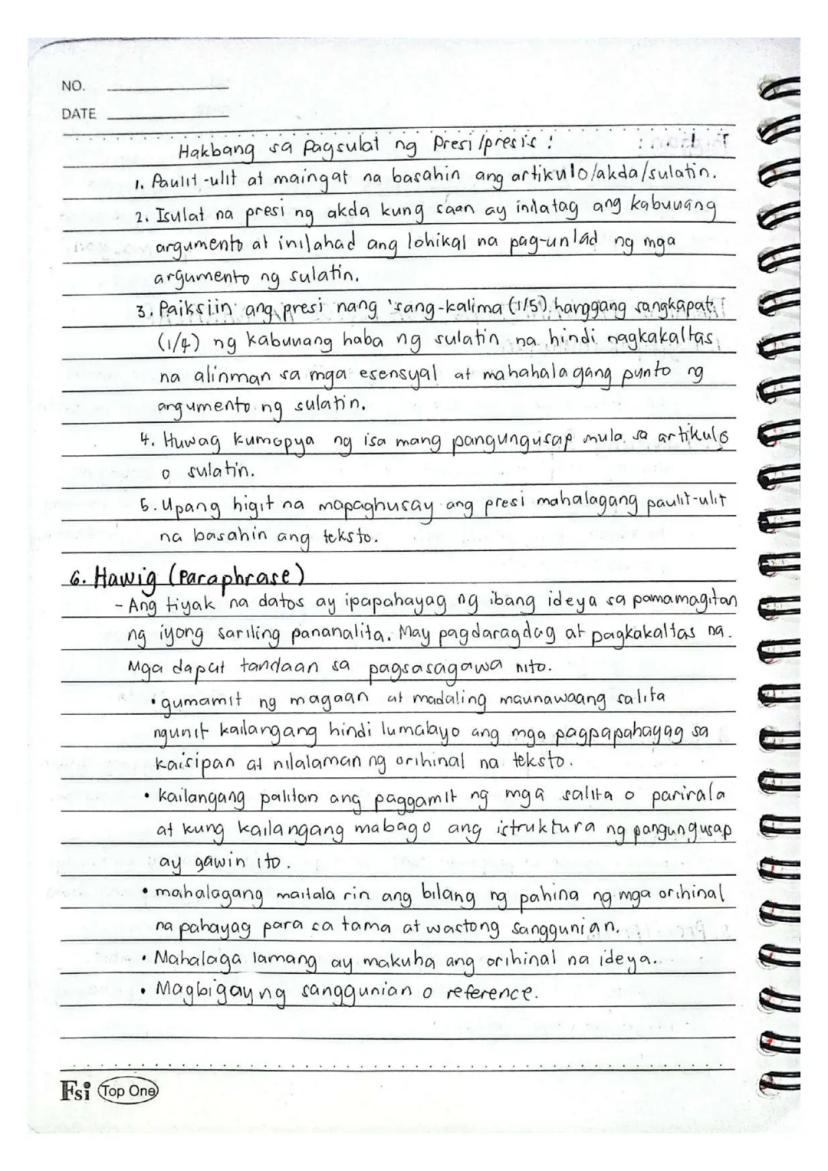 NO.
DATE
Hakbang sa Pagsulat ng Presi/presis:
1. Paulit-ulit at maingat na basahin ang artikulo/akda/sulatin.
2. Isulat na presi ng akda kung saan ay inilatag ang kabuuang
argumento at inilahad ang lohikal na pag-unlad ng mga
argumento ng sulatin.
3. Paiksiin ang presi nang 'sang-kalima (1/5) hanggang sangkapat
(1/4) ng kabuuang haba ng sulatin na hindi nagkakaltas
na alinman sa mga esensyal at mahahalagang punto ng
argumento ng sulatin.
4. Huwag kumopya ng isa mang pangungusap mula sa artikulo
o sulatin.
5. Upang higit na mapaghusay ang presi mahalagang paulit-ulit
na basahin ang teksto.
6. Hawig (Paraphrase)
- Ang tiyak na datos ay ipapahayag ng ibang ideya sa pamamagitan
ng iyong sariling pananalita. May pagdaragdag at pagkakaltas na.
Mga dapat tandaan sa pagsasagawa nito.
• gumamit ng magaan at madaling maunawaang salita
ngunit kailangang hindi lumalayo ang mga pagpapahayag sa
kaisipan at nilalaman ng orihinal na teksto.
• kailangang palitan ang paggamit ng mga salita o parirala
at kung kailangang mabago ang istruktura ng pangungusap
ay gawin ito.
• mahalagang maitala rin ang bilang ng pahina ng mga orihinal
na pahayag para sa tama at wastong sanggunian.
• Mahalaga lamang ay makuha ang orihinal na ideya.
• Magbigay ng sanggunian o reference.
Fsi Top One